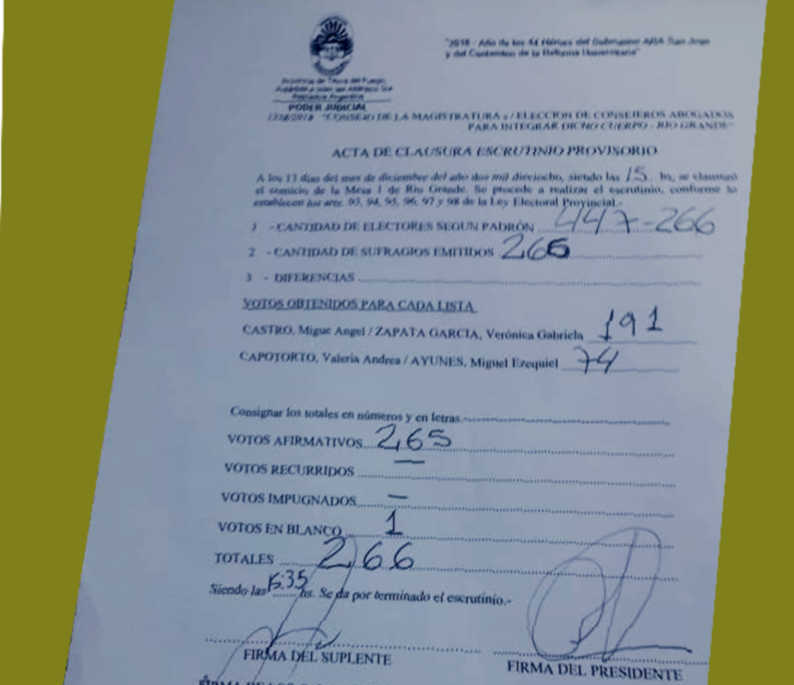 "2018 - Año de los 44 Héroes del Submarino ARA San Juan
y del Centenario de la Reforma Universitaria"
Provincia de Tierra del Fuego,
Antártida e Islas del Atlántico Sur
República Argentina
PODER JUDICIAL
"CONSEJO DE LA MAGISTRATURA s/ ELECCION DE CONSEJEROS ABOGADOS
PARA INTEGRAR DICHO CUERPO - RIO GRANDE"
ACTA DE CLAUSURA ESCRUTINIO PROVISORIO
A los 13 días del mes de diciembre del año dos mil dieciocho, siendo las 15 hs, se clausuró
el comicio de la Mesa 1 de Río Grande. Se procede a realizar el escrutinio, conforme lo
establecen los arts. 93, 94, 95, 96, 97 y 98 de la Ley Electoral Provincial.-
1 - CANTIDAD DE ELECTORES SEGUN PADRÓN 447-266
2 - CANTIDAD DE SUFRAGIOS EMITIDOS 266
3 - DIFERENCIAS
VOTOS OBTENIDOS PARA CADA LISTA
CASTRO, Migue Angel / ZAPATA GARCIA, Verónica Gabriela 191
CAPOTORTO, Valeria Andrea / AYUNES, Miguel Ezequiel 74
Consignar los totales en números y en letras.-
VOTOS AFIRMATIVOS 265
VOTOS RECURRIDOS —
VOTOS IMPUGNADOS —
VOTOS EN BLANCO 1
TOTALES 266
Siendo las 15:35 hs. Se da por terminado el escrutinio.-
FIRMA DEL SUPLENTE
FIRMA DEL PRESIDENTE